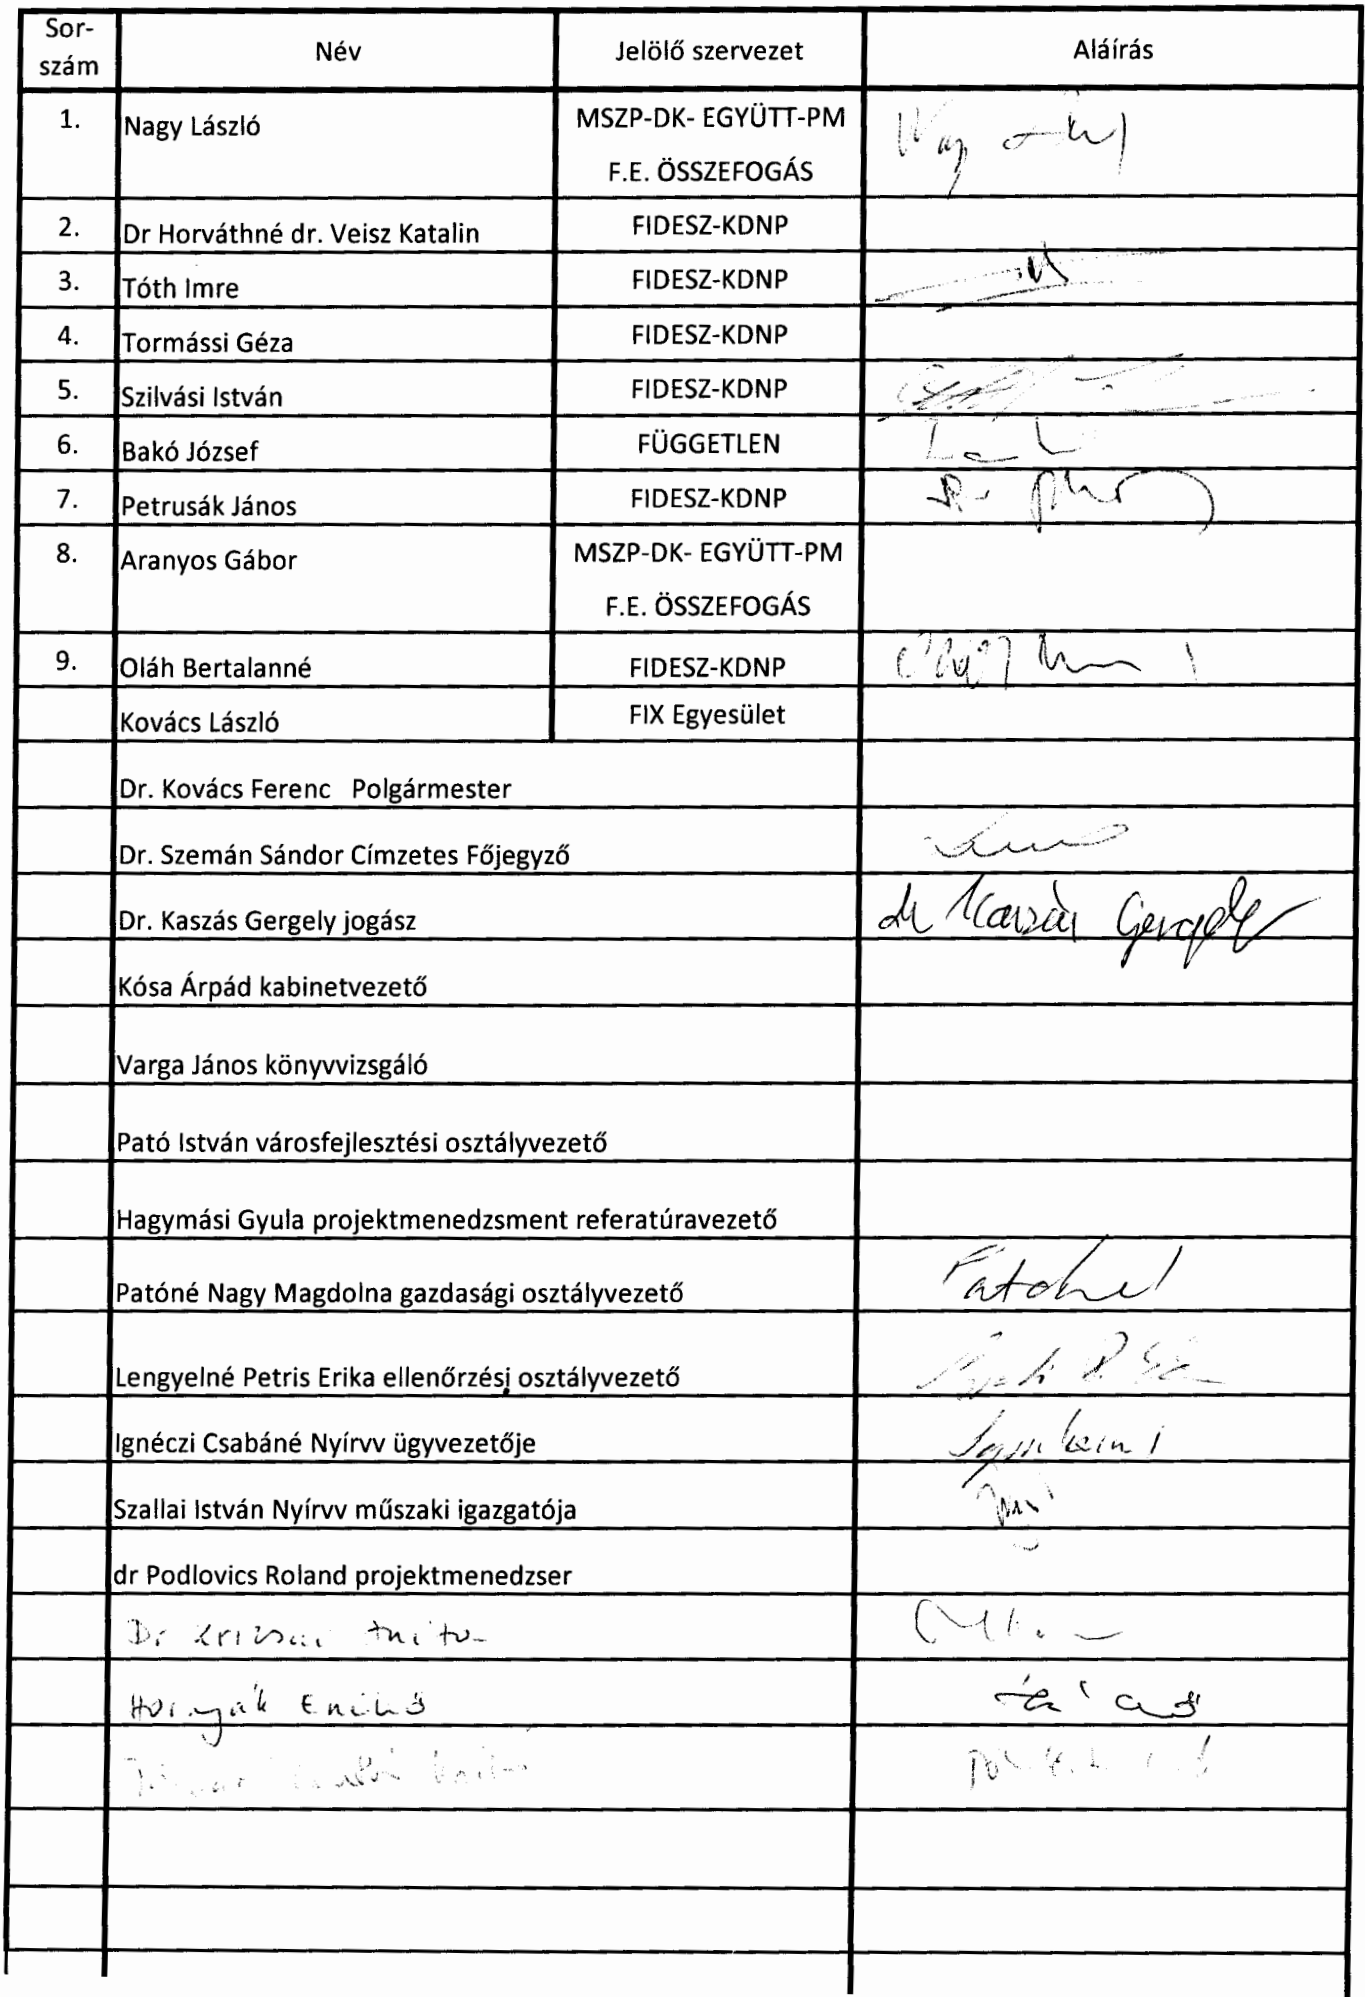 Sor-
szám
Név
Jelölő szervezet
Aláírás
1.
Nagy László
MSZP-DK- EGYÜTT-PM
F.E. ÖSSZEFOGÁS
2.
Dr Horváthné dr. Veisz Katalin
FIDESZ-KDNP
3.
Tóth Imre
FIDESZ-KDNP
4.
Tormássi Géza
FIDESZ-KDNP
5.
Szilvási István
FIDESZ-KDNP
6.
Bakó József
FÜGGETLEN
7.
Petrusák János
FIDESZ-KDNP
8.
Aranyos Gábor
MSZP-DK- EGYÜTT-PM
F.E. ÖSSZEFOGÁS
9.
Oláh Bertalanné
FIDESZ-KDNP
Kovács László
FIX Egyesület
Dr. Kovács Ferenc Polgármester
Dr. Szemán Sándor Címzetes Főjegyző
Dr. Kaszás Gergely jogász
dr Kaszás Gergely
Kósa Árpád kabinetvezető
Varga János könyvvizsgáló
Pató István városfejlesztési osztályvezető
Hagymási Gyula projektmenedzsment referatúravezető
Patóné Nagy Magdolna gazdasági osztályvezető
Patóné
Lengyelné Petris Erika ellenőrzési osztályvezető
Ignéczi Csabáné Nyírvv ügyvezetője
Szallai István Nyírvv műszaki igazgatója
dr Podlovics Roland projektmenedzser
Dr Krizsai Anita
Hornyák Enikő